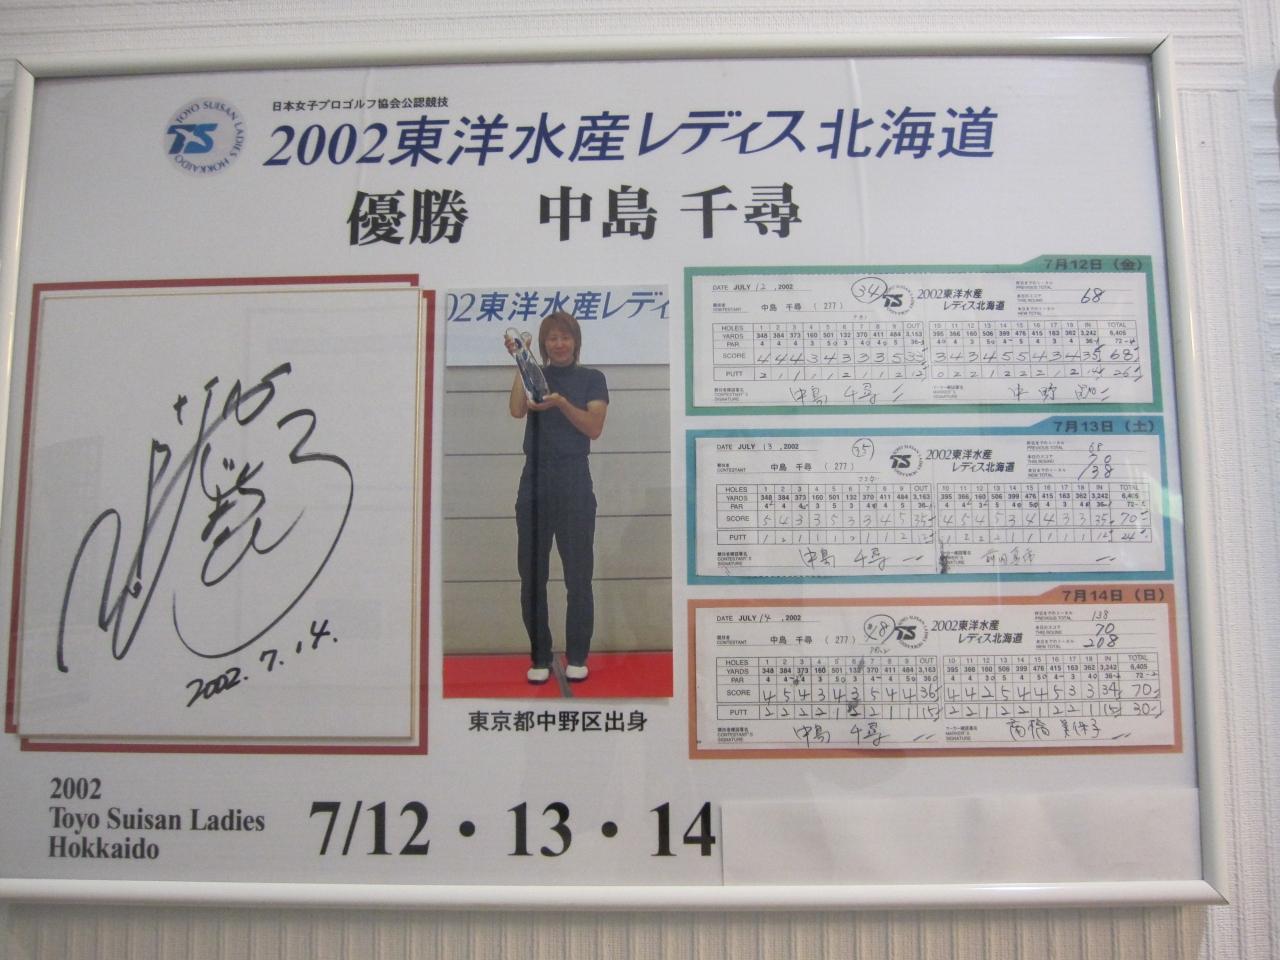 TOYO SUISAN LADIES HOKKAIDO
TS
日本女子プロゴルフ協会公認競技
2002東洋水産レディス北海道
優勝　中島 千尋
2002.7.14.
02東洋水産レディ
東京都中野区出身
7月12日（金）
DATE JULY 12 , 2002
中島 千尋 ( 277 )
34
TS
2002東洋水産
レディス北海道
68
HOLES 1 2 3 4 5 6 7 8 9 OUT 10 11 12 13 14 15 16 17 18 IN TOTAL
YARDS 348 384 373 160 501 132 370 411 484 3,163 395 366 160 506 399 476 415 163 362 3,242 6,405
PAR 4 4 4 3 5 3 4 4 5 36 4 4 3 5 4 5 4 3 4 36 72
SCORE 4 4 4 3 4 3 3 3 5 33 3 4 3 4 5 5 4 3 4 35 68
PUTT
中島 千尋
7月13日（土）
DATE JULY 13 , 2002
中島 千尋 ( 277 )
TS
2002東洋水産
レディス北海道
68
70
138
HOLES 1 2 3 4 5 6 7 8 9 OUT 10 11 12 13 14 15 16 17 18 IN TOTAL
YARDS 348 384 373 160 501 132 370 411 484 3,163 395 366 160 506 399 476 415 163 362 3,242 6,405
PAR 4 4 4 3 5 3 4 4 5 36 4 4 3 5 4 5 4 3 4 36
SCORE 5 4 3 3 5 3 3 4 5 35 4 5 4 5 3 4 4 3 3 35 70
PUTT
中島 千尋
7月14日（日）
DATE JULY 14 , 2002
中島 千尋 ( 277 )
TS
2002東洋水産
レディス北海道
138
70
208
HOLES 1 2 3 4 5 6 7 8 9 OUT 10 11 12 13 14 15 16 17 18 IN TOTAL
YARDS 348 384 373 160 501 132 370 411 484 3,163 395 366 160 506 399 476 415 163 362 3,242 6,405
PAR 4 4 4 3 5 3 4 4 5 36 4 4 3 5 4 5 4 3 4 36 72
SCORE 4 5 4 3 4 3 5 4 4 36 4 4 2 5 4 4 5 3 3 34 70
PUTT 2 2 2 2 1 2 2 1 1 15 2 2 1 2 2 2 2 1 1 15 30
中島 千尋
高橋 美保子
2002
Toyo Suisan Ladies
Hokkaido
7/12・13・14